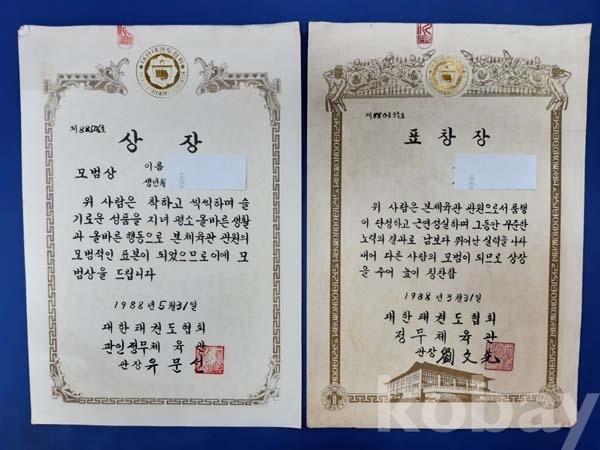 상장
모범상
이름
생년월
위 사람은 착하고 씩씩하며 슬
기로운 성품을 지녀 평소 올바른 생활
과 올바른 행동으로 본체육관 관원의
모범적인 표본이 되었으므로 이에 모
범상을 드립니다
1988년 5월 31일
대한태권도협회
관인정무체육관
관장 유문선
표창장
위 사람은 본체육관 관원으로서 품행
이 단정하고 근면성실하며 그동안 꾸준한
노력의 결과로 남보다 뛰어난 실력을 나타
내어 다른 사람의 모범이 되므로 상장
을 주어 높이 칭찬함
1988년 3월 31일
대한태권도협회
정무체육관
관장 劉文先
kobay